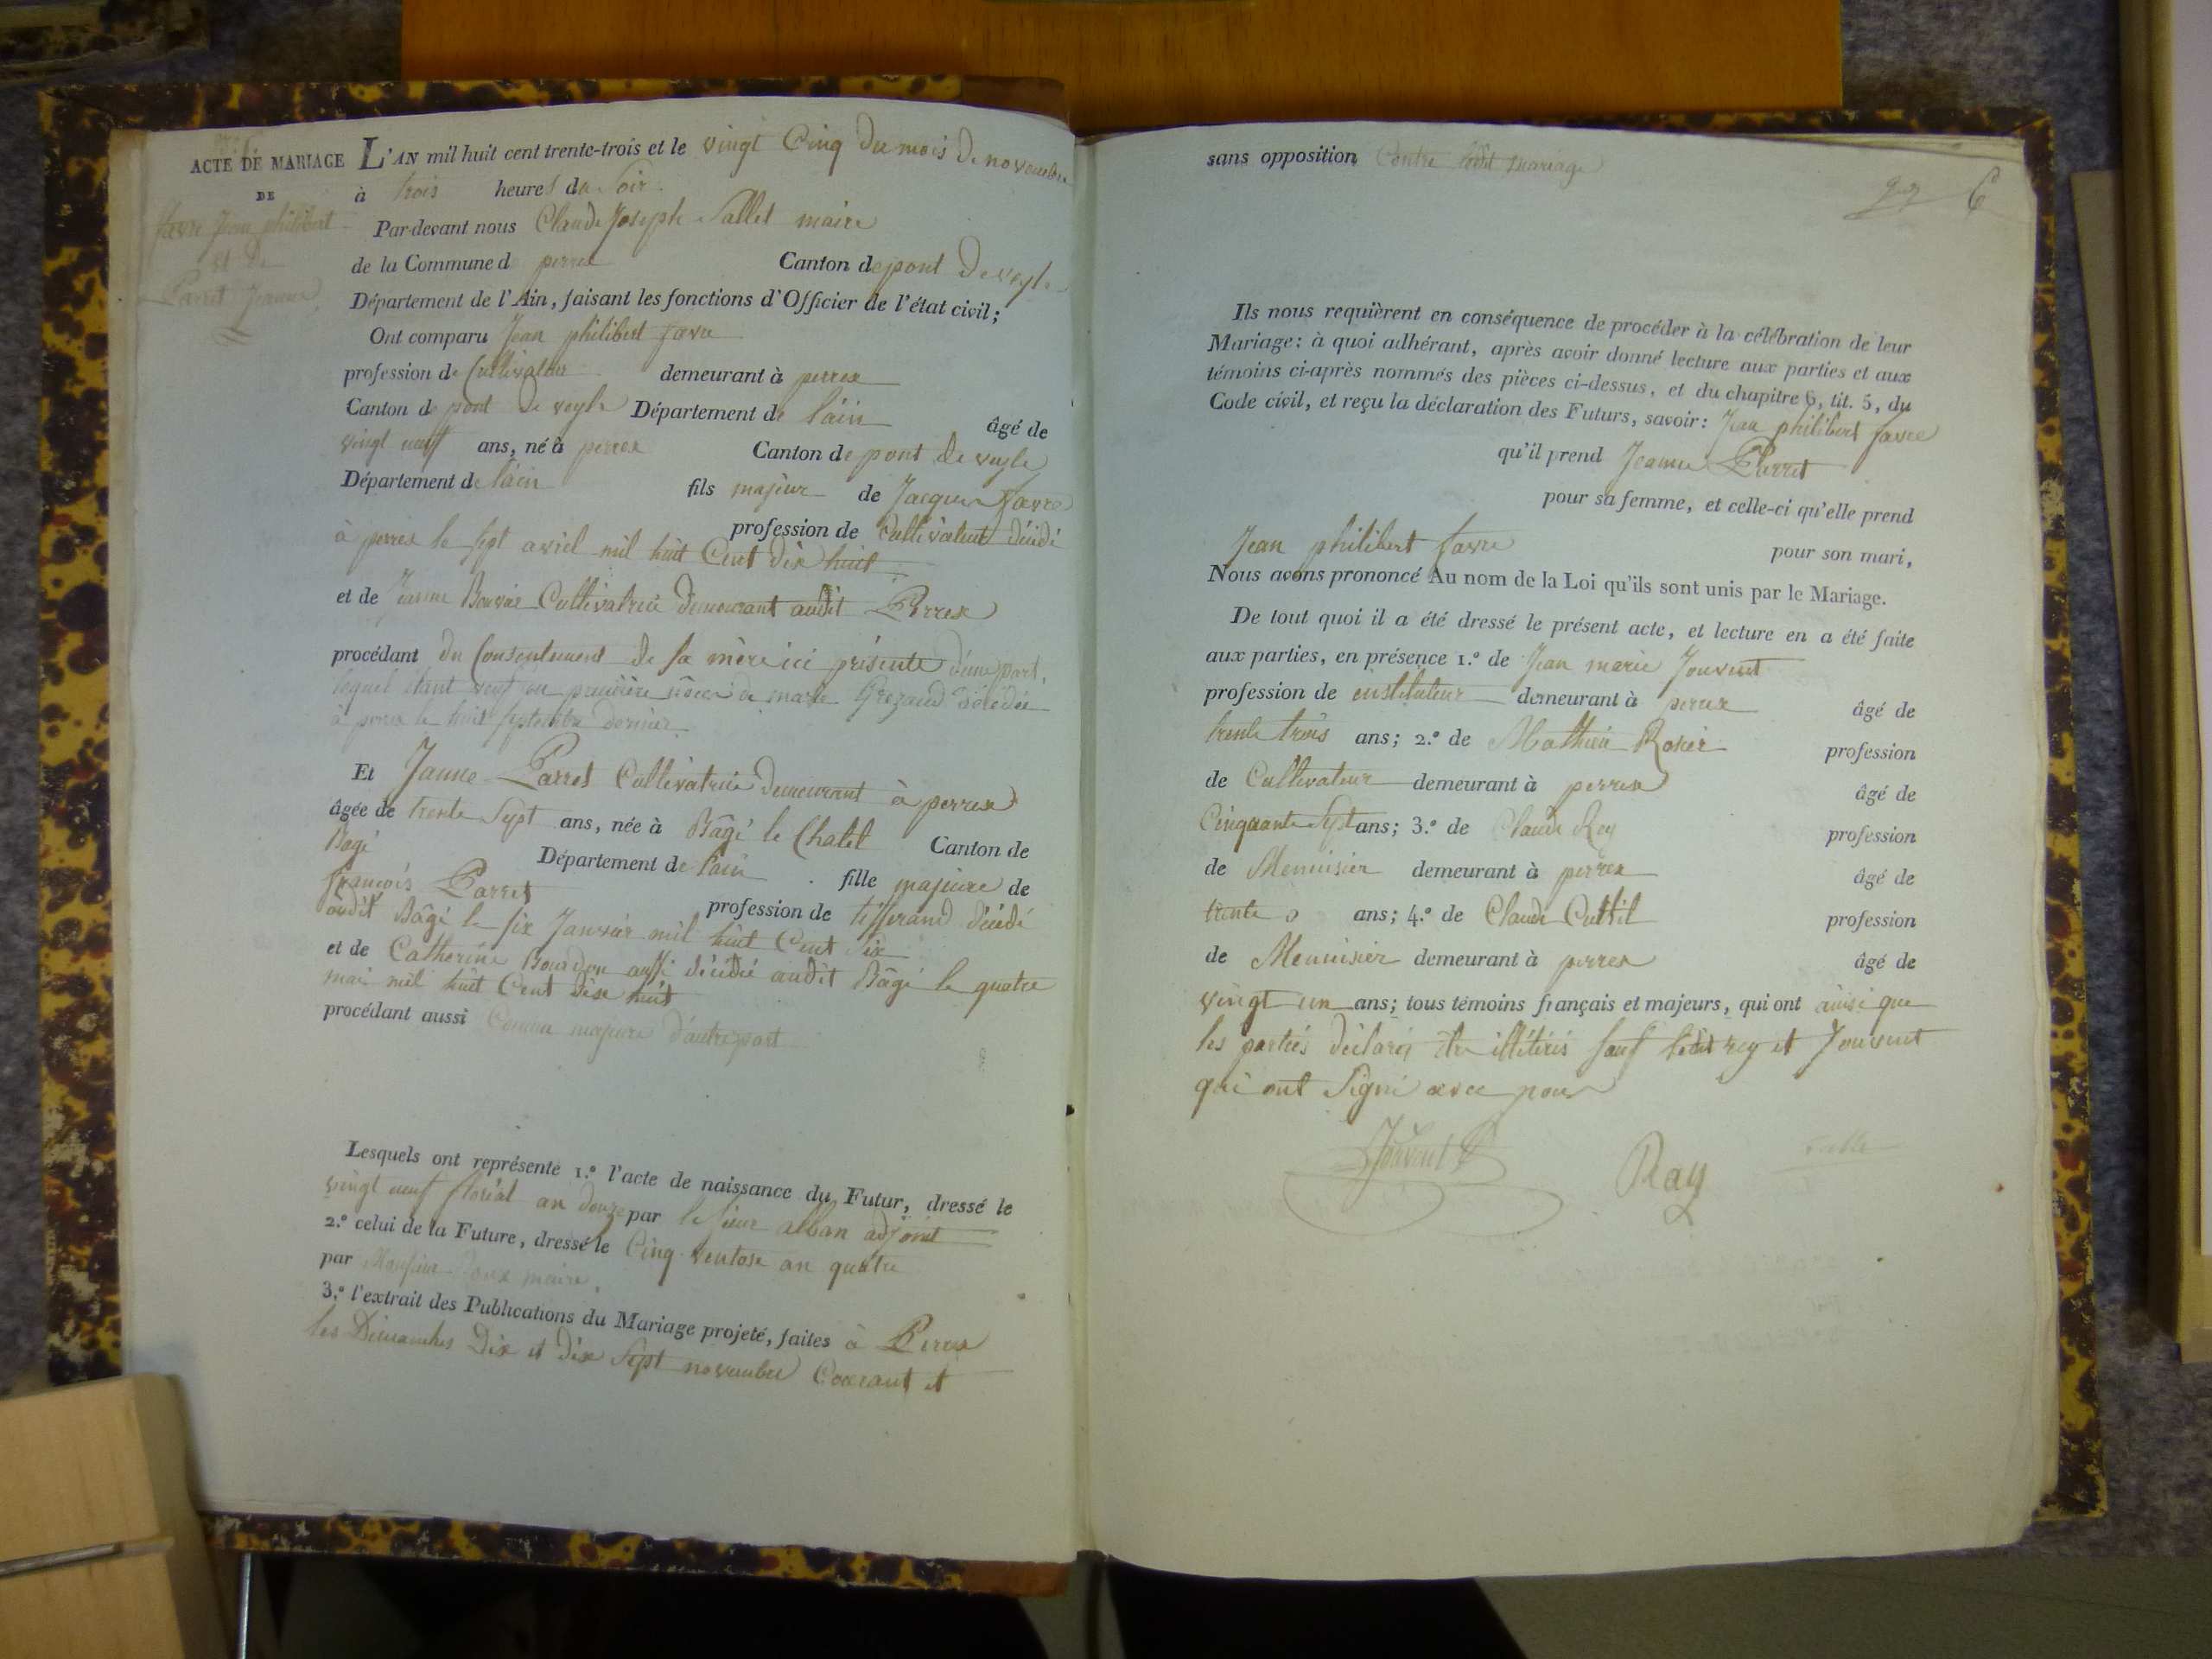 ACTE DE MARIAGE
DE
favre Jean philibert
et De
Parret Jeanne
L'AN mil huit cent trente-trois et le vingt Cinq du mois de novembre
à trois heures du Soir
Par-devant nous Claude Joseph Sallet maire
de la Commune d perrex Canton de pont de veyle
Département de l'Ain, faisant les fonctions d'Officier de l'état civil;
Ont comparu Jean philibert favre
profession de Cultivateur demeurant à perrex
Canton de pont de veyle Département de lain âgé de
vingt neuf ans, né à perrex Canton de pont de veyle
Département de lain fils majeur de Jacques favre
profession de Cultivateur décédé
à perrex le sept avril mil huit Cent dix huit
et de Jeanne Bouvier Cultivatrice demeurant audit Perrex
procédant du Consentement de sa mère ici présente d'une part,
lequel étant veuf en première nôces de marie décédée
à perrex le huit septembre dernier
Et Janne Parret Cultivatrice demeurant à perrex
âgée de trente Sept ans, née à Bâgé le Chatel Canton de
Bagé Département de lain fille majeure de
françois Parret profession de tisserand décédé
audit Bâgé le six Janvier mil huit Cent dix
et de Catherine Bourdon aussi décédée audit Bâgé le quatre
mai mil huit Cent dixe huit
procédant aussi Comme majeure d'autre part
Lesquels ont représenté 1.º l'acte de naissance du Futur, dressé le
vingt neuf floréal an douze par le sieur alban adjoint
2.º celui de la Future, dressé le Cinq ventose an quatre
par Monsieur maire
3.º l'extrait des Publications du Mariage projeté, faites à Perrex
les Dimanches Dix et dix Sept novembre Courant et
sans opposition Contre ledit mariage
6
Ils nous requièrent en conséquence de procéder à la célébration de leur
Mariage: à quoi adhérant, après avoir donné lecture aux parties et aux
témoins ci-après nommés des pièces ci-dessus, et du chapitre 6, tit. 5, du
Code civil, et reçu la déclaration des Futurs, savoir: Jean philibert favre
qu'il prend Jeanne Parret
pour sa femme, et celle-ci qu'elle prend
Jean philibert favre pour son mari,
Nous avons prononcé Au nom de la Loi qu'ils sont unis par le Mariage.
De tout quoi il a été dressé le présent acte, et lecture en a été faite
aux parties, en présence 1.º de Jean marie Jouvent
profession de instituteur demeurant à perrex âgé de
trente trois ans; 2.º de Mathieu Rosier profession
de Cultivateur demeurant à perrex âgé de
Cinquante Sept ans; 3.º de Claude Rey profession
de Menuisier demeurant à perrex âgé de
trente ans; 4.º de Claude Cuttil profession
de Menuisier demeurant à perrex âgé de
vingt un ans; tous témoins français et majeurs, qui ont ainsi que
les parties déclaré être illétérés sauf ledit rey et Jouvent
qui ont Signé avec nous
Jouvent
Ray